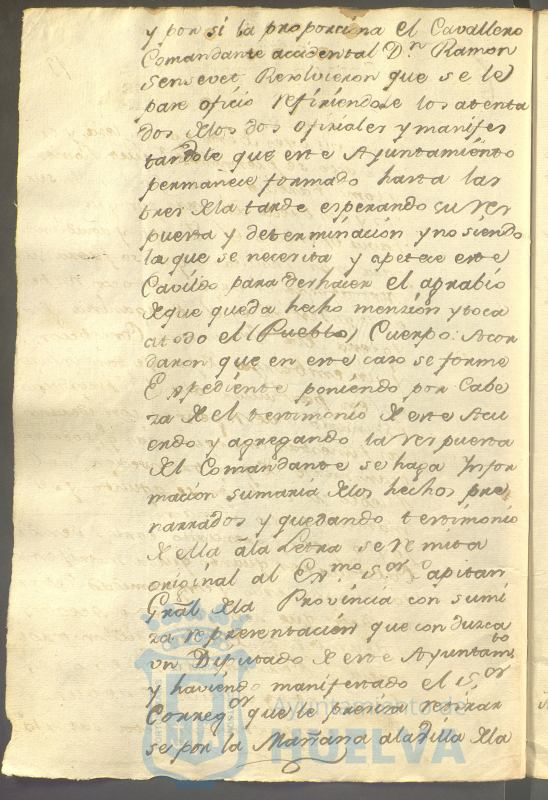 y por si la proporciona el Cavallero
Comandante accidental D.n Ramon
Sensevet Resolvieron que se le
pase oficio refiriendole los atenta
dos de los dos oficiales y manifes
tandole que este Ayuntamiento
permanece formado hasta las
tres de la tarde esperando su res
puesta y determinación y no siendo
la que se necesita y apetece este
Cavildo para deshacer el agrabio
de que queda hecho menzion y toca
a todo el (Pueblo) Cuerpo: Acor
daron que en este caso se forme
Expediente poniendo por Cabe
za de el testimonio de este Acu
erdo y agregando la respuesta
del Comandante se haga Infor
macion sumaria de los hechos pre
narrados y quedando testimonio
de ella â la Letra se remita
original al Ex.mo S.or Capitan
Gral de la Provincia con sumi
za representación que conduzca
un Diputado de este Ayuntam.to
y haviendo manifestado el S.or
Correg.or que le precisa retirar
se por la Mañana a la Villa de la
Ayuntamiento de
HUELVA